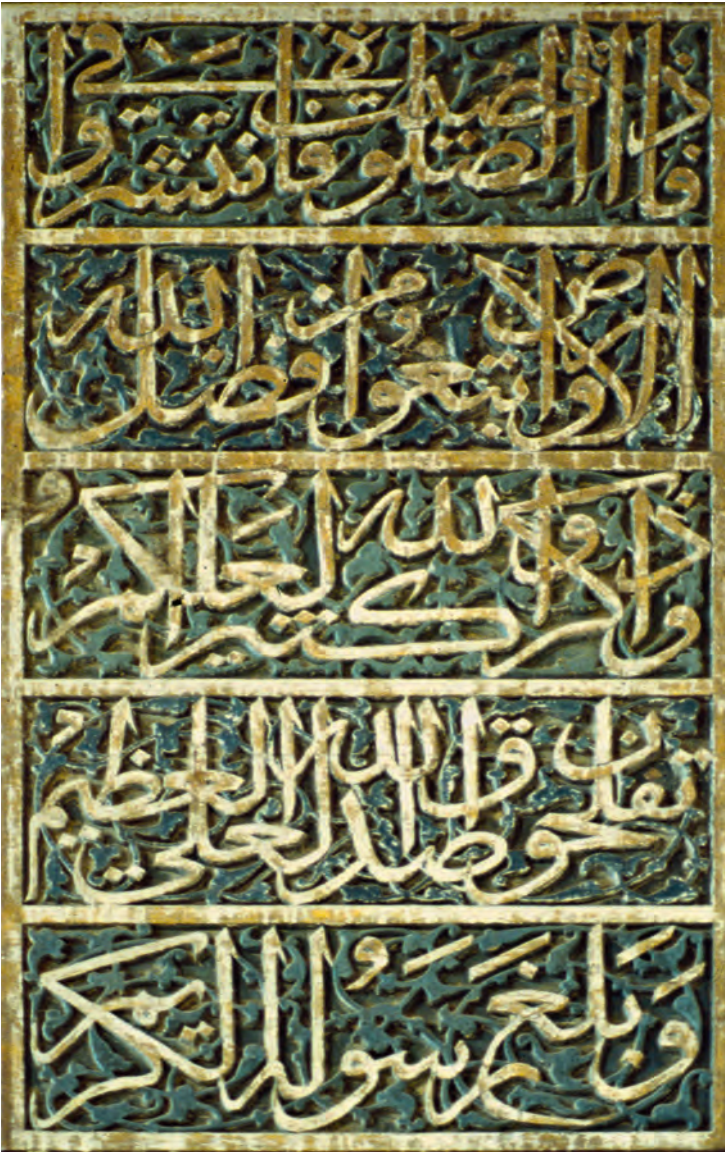 فاذا قضيت الصلوة فانتشروا فى
الارض وابتغوا من فضل الله
واذكروا الله كثيرا لعلكم
تفلحون صدق الله العلى العظيم
وبلغ رسوله الكريم